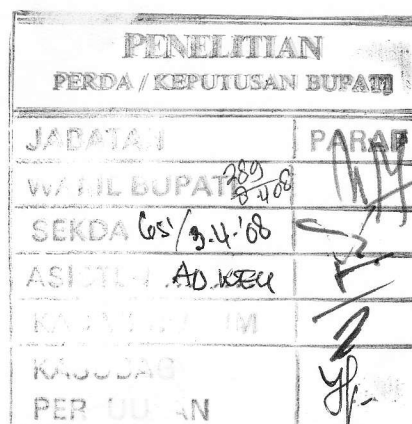 PENELITIAN
PERDA / KEPUTUSAN BUPATI
JABATAN PARAF
WAKIL BUPATI 289 8-4-08
SEKDA 65'/3-4-'08
ASISTEN AD. KEU
KASUBBAG
PER UU AN